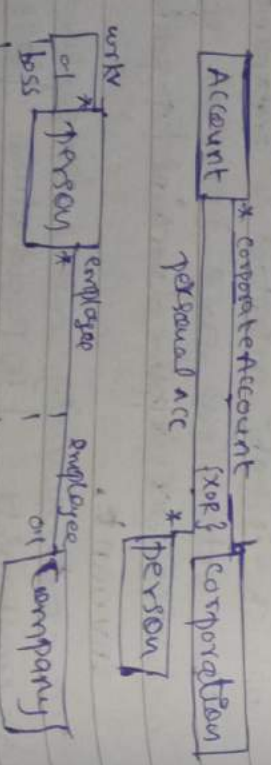 Account
* corporate Account
{XOR}
corporation
personal Acc
*
person
wrkr
*
01
boss
person
*
employee
employee
01
Company